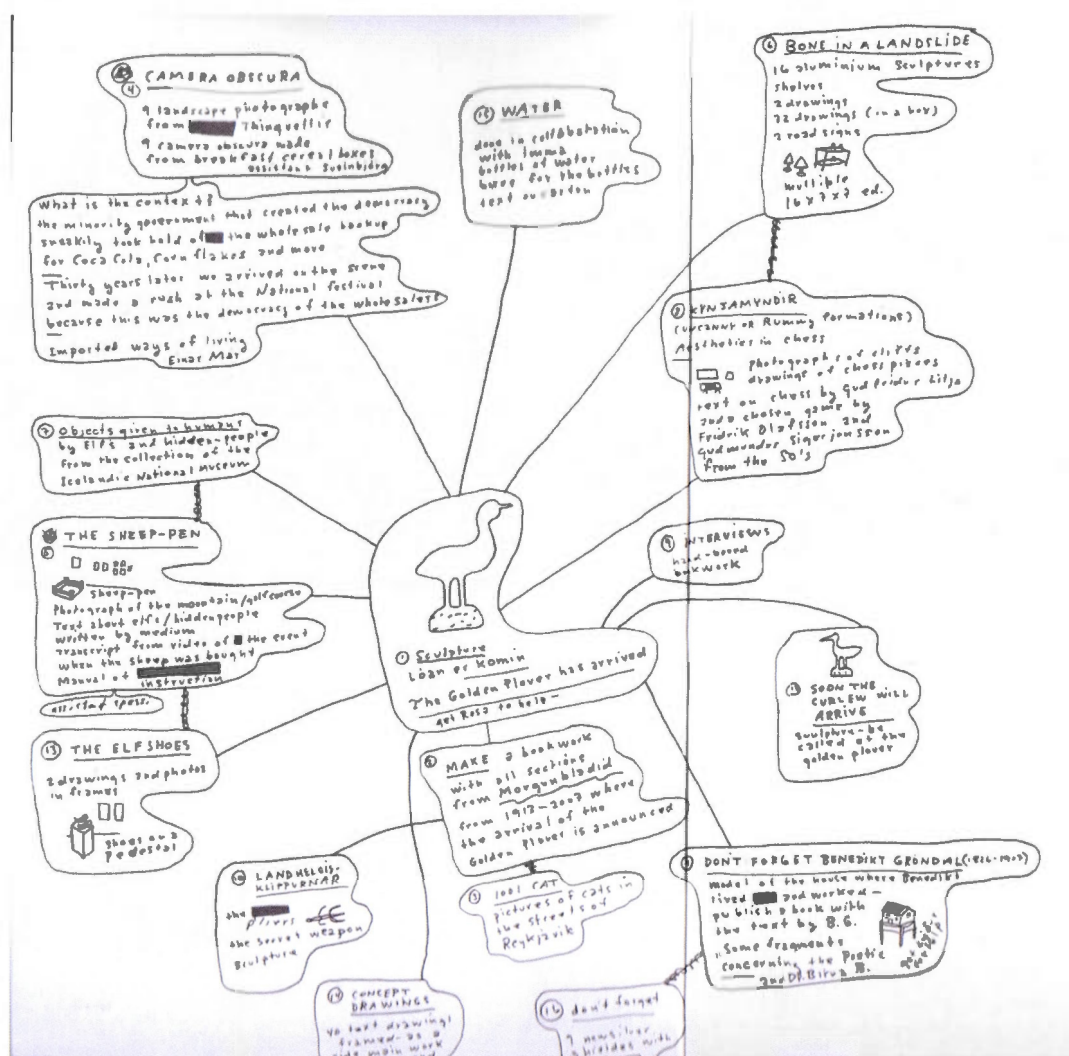 ④ CAMERA OBSCURA
9 landscape photographs
from Thingvellir
9 camera obscura made
from breakfast cereal boxes
assistant Sveinbjörg
What is the context?
the minority government that created the democracy
sneakily took hold of the wholesale bookup
for Coca Cola, Corn flakes and more
Thirty years later we arrived on the scene
and made a rush at the National festival
because this was the democracy of the wholesalers
Imported ways of living
Einar Mar
⑮ WATER
done in collaboration
with Imma
bottles of water
base for the bottles
text on carton
⑥ BONE IN A LANDSLIDE
16 aluminium sculptures
shelves
2 drawings
22 drawings (in a box)
2 road signs
multiple
16 x 7 x 7 ed.
KYNJAMYNDIR
(UNCANNY OR Rummy formations)
Aesthetics in chess
photographs of cliffs
drawings of chess pieces
text on chess by Gudfridur Lilja
and a chosen game by
Fridrik Olafsson and
Gudmundur Sigurjonsson
from the 50's
⑦ Objects given to humans
by Elfs and hidden-people
from the collection of the
Icelandic National Museum
THE SHEEP-PEN
sheep-pen
Photograph of the mountain/golfcourse
Text about elfs/hidden people
written by medium
transcript from video of the event
when the sheep was bought
Manual of
instruction
assistant spessi
⑬ THE ELFSHOES
2 drawings and photos
in frames
shoes on a
pedestal
① Sculpture
Lóan er Komin
The Golden Plover has arrived
get Rosa to help –
⑨ INTERVIEWS
hand-bound
bookwork
SOON THE
CURLEW WILL
ARRIVE
sculpture – be
called of the
golden plover
MAKE a bookwork
with all sections
from Morgunbladid
from 1913-2007 where
the arrival of the
Golden Plover is announced
③ 1001 CAT
pictures of cats in
the streets of
Reykjavik
⑩ LANDHELGIS-
KLIPPURNAR
the
pliers
the secret weapon
sculpture
DONT FORGET BENEDIKT GRÖNDAL (1826-1907)
model of the house where Benedikt
lived and worked –
publish a book with
the text by B.G.
„Some fragments
concerning the Poetic
and Dr. Birna B.
⑭ CONCEPT
DRAWINGS
40 text drawings
framed – as a
side main work
⑯ don't forget
newsilver
shieldes with